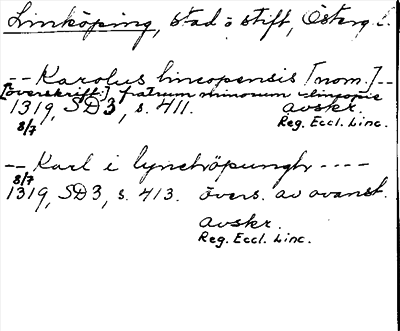 Linköping, stad o stift, Österg. l.
-- Karolus lincopensis [nom.] --
[överskrift:] fratrum minorum lincopie
1319, SD 3, s. 411. avskr.
8/7 Reg. Eccl. Linc.
-- Karl i lynchöpungh ----
8/7
1319, SD 3, s. 413. övers. av ovanst.
avskr.
Reg. Eccl. Linc.